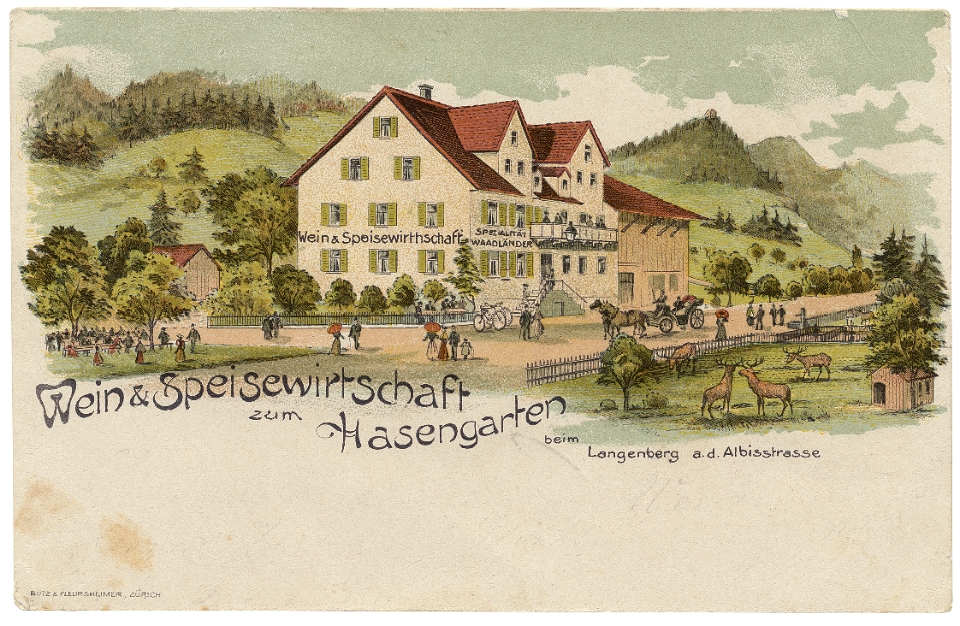 Wein & Speisewirthschaft
SPEZIALITÄT
WAADLÄNDER
Wein & Speisewirtschaft
zum
Hasengarten
beim
Langenberg a.d. Albisstrasse
ZÜRICH